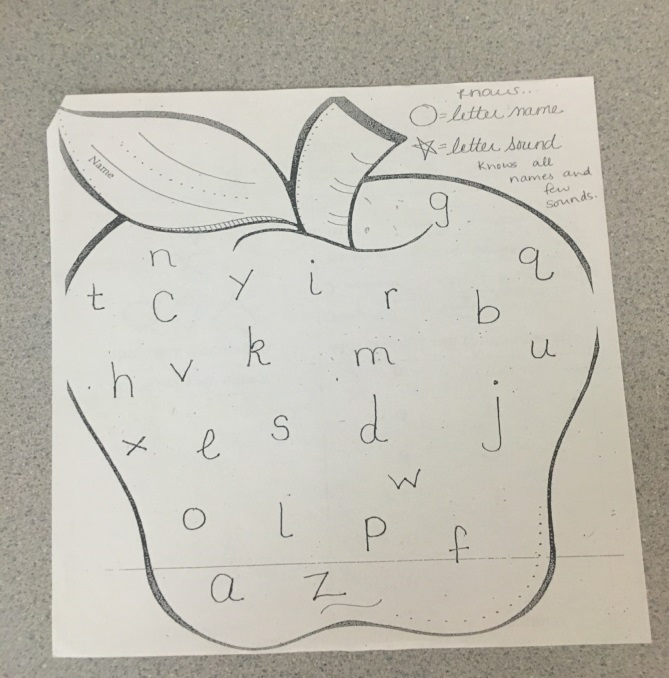 knows...
O=letter name
☆=letter sound
knows all
names and
few
sounds.
Name
g
n y i q
t c r b
k m u
h v
x e s d j
w
o l p f
a z